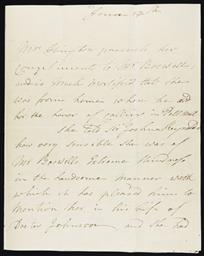 Mrs Abington presents her
Compliments to Mr Boswell
and is much mortified that she
was from home when he did
her the honor of calling in Pall Mall
She told Sr Joshua Reynolds
how very sensible she was of
Mr Boswells Extreme kindness
in the handsome manner with
which it has pleased him to
mention her in his Life of
Docter Johnson and she had